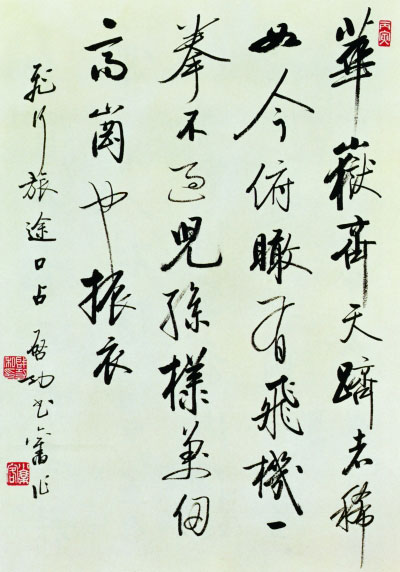 華嶽齊天躋者稀
如今俯瞰有飛機一
拳不過兒孫樣萬仞
高崗也振衣
飛行旅途口占 啓功書舊作
丙寅